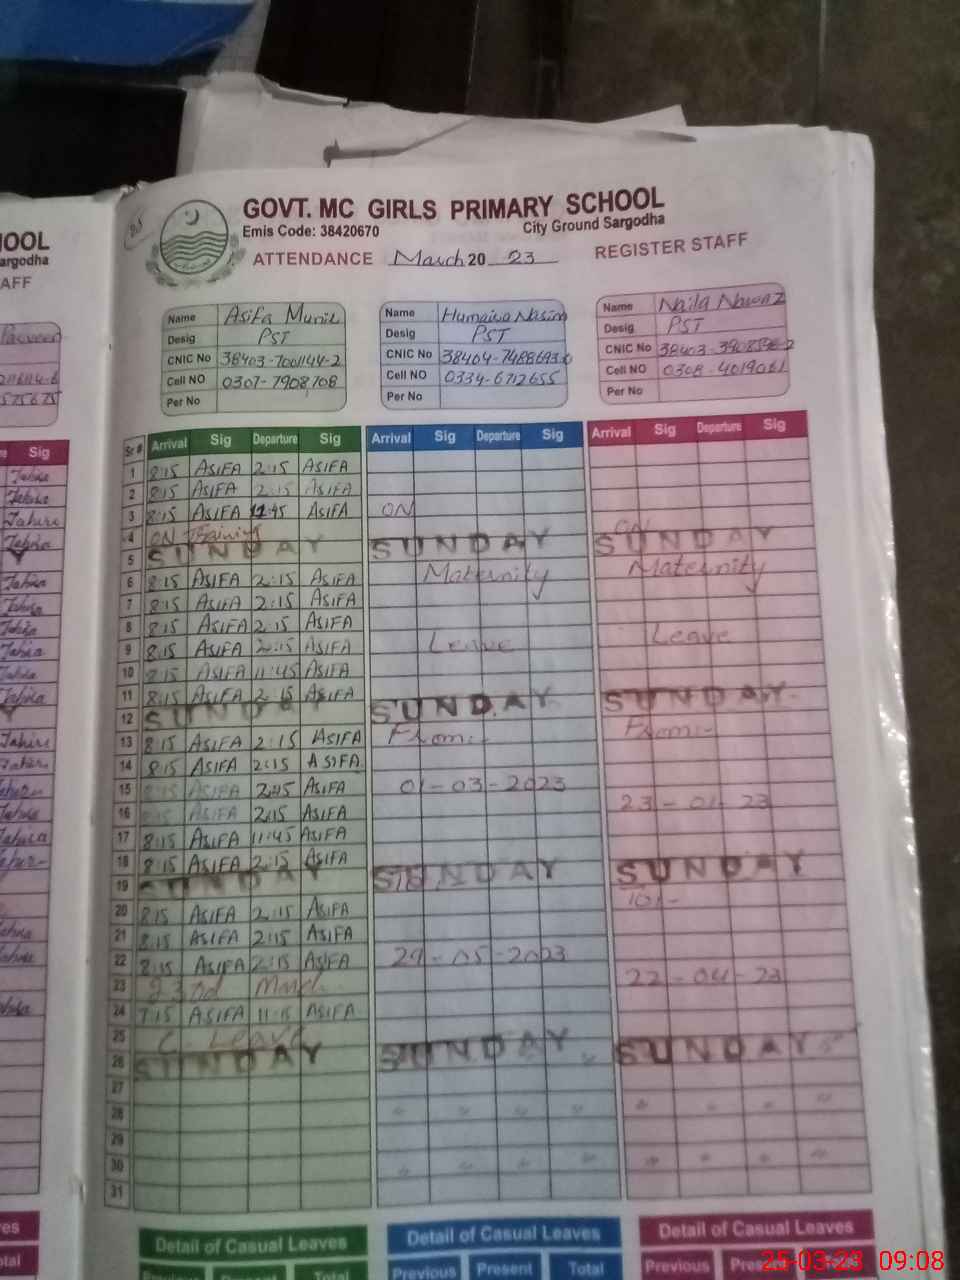 GOVT. MC GIRLS PRIMARY SCHOOL
Emis Code: 38420670 City Ground Sargodha
ATTENDANCE March 20 23 REGISTER STAFF
Name Asifa Munir
Desig PST
CNIC No 38403-7001144-2
Cell NO 0307-7908708
Per No
Name Humaira Nasim
Desig PST
CNIC No 38404-7488693-6
Cell NO 0334-6712655
Per No
Name Naila Nawaz
Desig PST
CNIC No
Cell NO 0308-4019061
Per No
Sr # Arrival Sig Departure Sig Arrival Sig Departure Sig Arrival Sig Departure Sig
1 8:15 ASIFA 2:15 ASIFA
2 8:15 ASIFA 2:15 ASIFA
3 8:15 ASIFA 11:45 ASIFA ON
4 ON Training ON
5 SUNDAY SUNDAY SUNDAY
6 8:15 ASIFA 2:15 ASIFA Maternity Maternity
7 8:15 ASIFA 2:15 ASIFA
8 8:15 ASIFA 2:15 ASIFA
9 8:15 ASIFA 2:15 ASIFA Leave Leave
10 8:15 ASIFA 11:45 ASIFA
11 8:15 ASIFA 2:15 ASIFA
12 SUNDAY SUNDAY SUNDAY
13 8:15 ASIFA 2:15 ASIFA From:- From:-
14 8:15 ASIFA 2:15 ASIFA
15 8:15 ASIFA 2:15 ASIFA 01-03-2023
16 ASIFA 2:15 ASIFA 23-01-23
17 8:15 ASIFA 11:45 ASIFA
18 8:15 ASIFA 2:15 ASIFA
19 SUNDAY SUNDAY SUNDAY
20 8:15 ASIFA 2:15 ASIFA
21 8:15 ASIFA 2:15 ASIFA
22 8:15 ASIFA 2:15 ASIFA 29-05-2023
23 23rd March 22-04-23
24 7:15 ASIFA 11:15 ASIFA
25 C. Leave
26 SUNDAY SUNDAY SUNDAY
27
28 " " " " " " " "
29
30 " " " " " " " "
31
Detail of Casual Leaves Detail of Casual Leaves Detail of Casual Leaves
Previous Present Total Previous Present Total
25-03-23 09:08